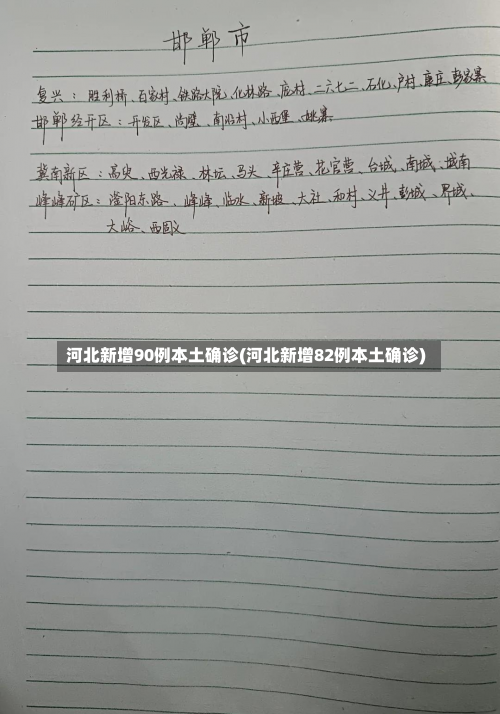 邯郸市
复兴：胜利桥、石家村、铁路大院、化林路、庞村、二六七二、石化、户村、康庄、彭家寨
邯郸经开区：开发区、尚璧、南沿村、小西堡、姚寨
冀南新区：高臾、西光禄、林坛、马头、辛庄营、花官营、台城、南城、城南
峰峰矿区：滏阳东路、峰峰、临水、新坡、大社、和村、义井、彭城、界城、
大峪、西固义
河北新增90例本土确诊(河北新增82例本土确诊)